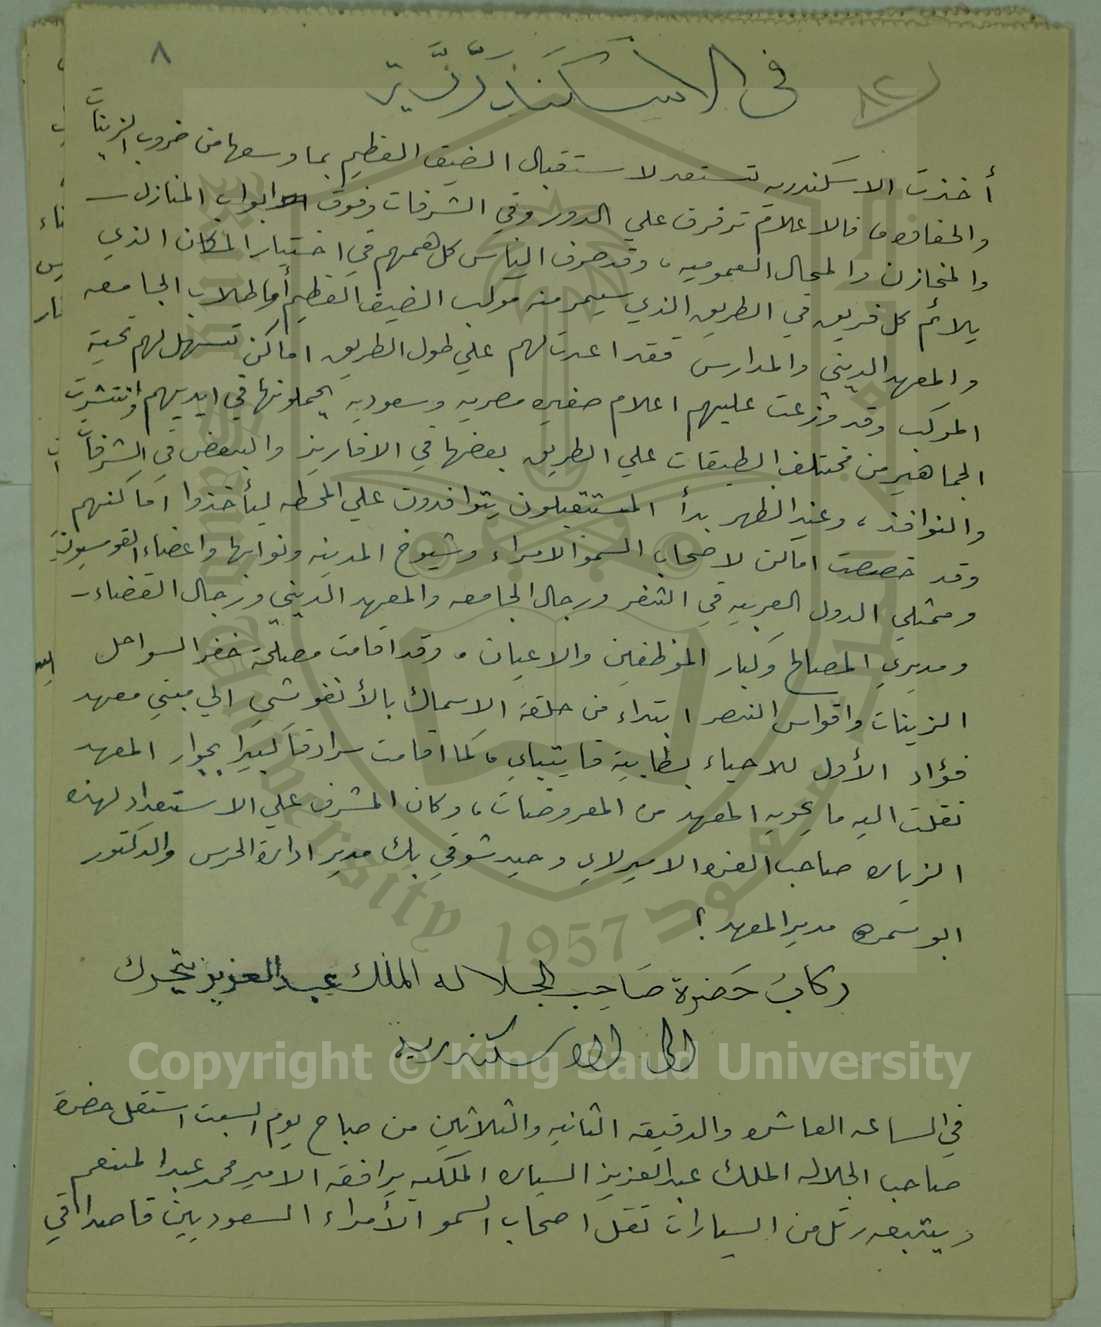 ٨
٨٢
في الاسكندرية
أخذت الاسكندريه تستعد لاستقبال الضيف العظيم بما وسعها من ضروب الزينات
والحفاوه فالاعلام ترفرف علي الدور وفي الشرفات وفوق ابواب المنازل
والمخازن والمحال العموميه ، وقد صرف الناس كل همهم في اختيار المكان الذي
يلائم كل فريق في الطريق الذي سيمر منه موكب الضيف العظيم أما طلاب الجامعه
والمعهد الديني والمدارس فقد اعدت لهم علي طول الطريق اماكن تسهل لهم تحية
الموكب وقد وزعت عليهم اعلام صغيره مصريه وسعوديه يحملونها في ايديهم وانتشرت
الجماهير من مختلف الطبقات علي الطريق بعضها في الافاريز والبعض في الشرفات
والنوافذ ، وعند الظهر بدأ المستقبلون يتوافدون علي المحطه ليأخذوا اماكنهم
وقد خصصت اماكن لاصحاب السمو الامراء وشيوخ المدينه ونوابها واعضاء القومسيون
وممثلي الدول العربيه في الثغر ورجال الجامعه والمعهد الديني ورجال القضاء
ومديري المصالح وكبار الموظفين والاعيان . وقد اقامت مصلحة خفر السواحل
الزينات واقواس النصر ابتداء من حلقة الاسماك بالأنفوشي الي مبني معهد
فؤاد الأول للاحياء بطابية قايتباي ، كما اقامت سرادقاً كبيرا بجوار المعهد
نقلت اليه ما يحويه المعهد من المعروضات ، وكان المشرف علي الاستعداد لهذه
الزياره صاحب العزه الاميرلاي وحيد شوقي بك مدير ادارة الحرس والدكتور
ابو سمره مدير المعهد ؟
ركاب حضرة صاحب الجلاله الملك عبد العزيز يتحرك
الى الاسكندريه
في الساعه العاشره والدقيقه الثانيه والثلاثين من صباح يوم السبت استقل حضرة
صاحب الجلاله الملك عبدالعزيز السياره الملكيه يرافقه الامير محمد عبد المنعم
ويتبعه رتل من السيارات تقل اصحاب السمو الأمراء السعوديين قاصدا في
Copyright © King Saud University
King Saud University
1957
جامعة الملك سعود